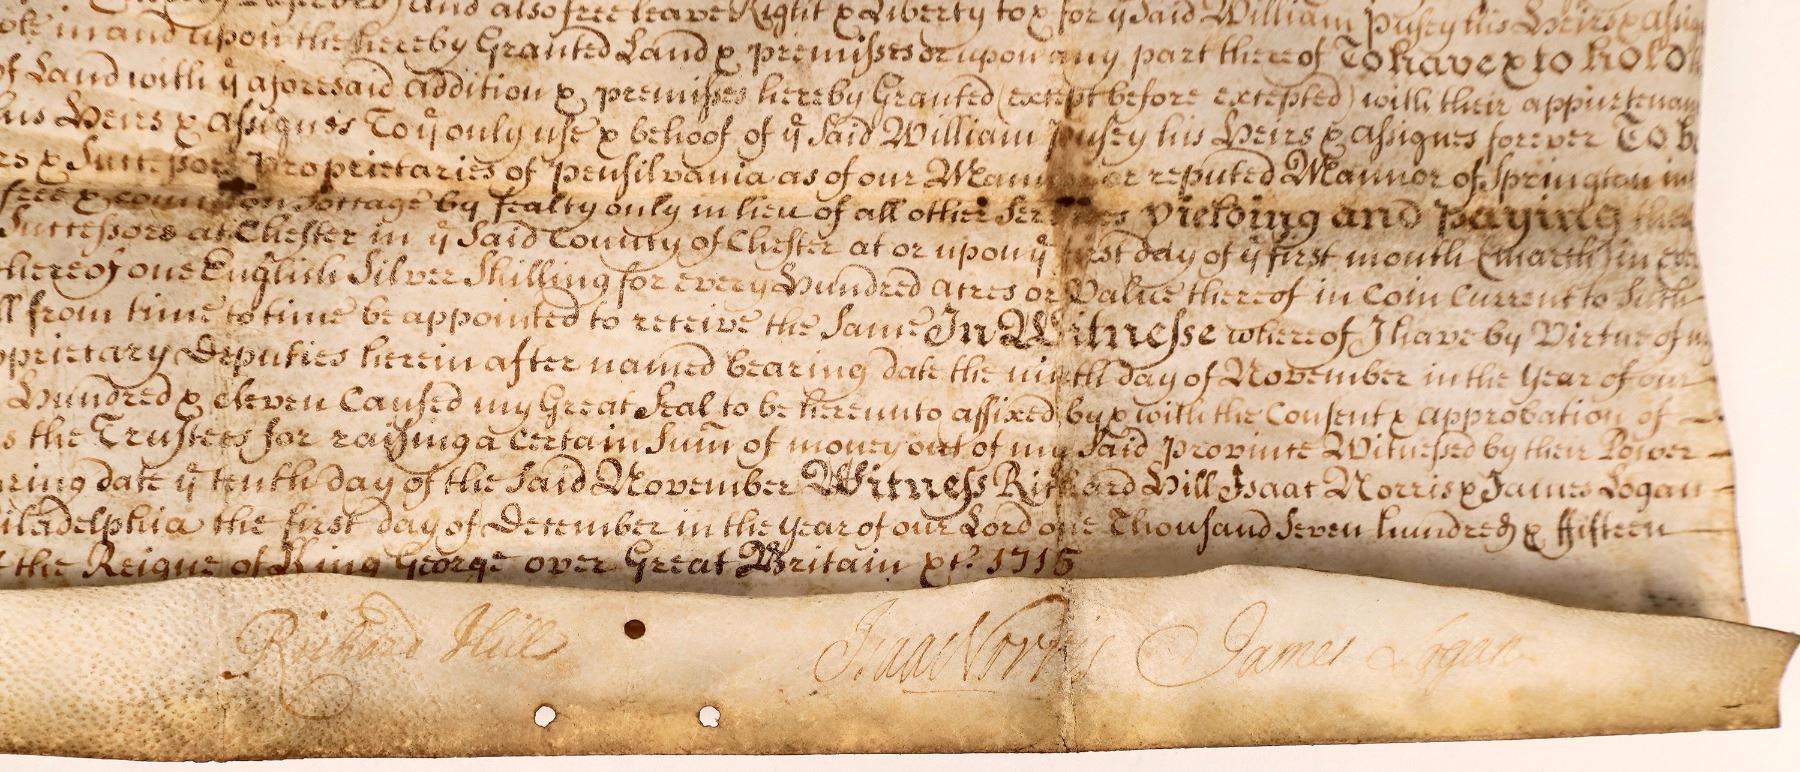 And also free leave Right & Liberty to & for yͤ Said William Pusey his Heirs & assig
in and upon the hereby Granted Land & premisses or upon any part thereof To have & to hold
of Land with yͤ aforesaid addition & premisses hereby Granted (except before excepted) with their appurtenan
his Heirs & assignes To yͤ only use & behoof of yͤ Said William Pusey his Heirs & assignes forever To be
rs & Successors Proprietaries of Pensilvania as of our Mannor or reputed Mannor of Springton in
free & common Soccage by fealty only in lieu of all other Services Yielding and Paying
Successors at Chester in yͤ Said County of Chester at or upon yͤ first day of yͤ first month (march) in eve
thereof one English Silver Shilling for every Hundred acres or Value thereof in Coin Current to Such
ll from time to time be appointed to receive the Same In Witnesse whereof I have by Virtue of my
oprietary Deputies herein after named bearing date the ninth day of November in the Year of our
Hundred & eleven Caused my Great Seal to be hereunto affixed by & with the Consent & approbation of
s the Trustees for raising a certain Sum̃ of money out of my Said Province Witnessed by their Power
aring date yͤ tenth day of the Said November Witness Richard Hill Isaac Norris & James Logan
iladelphia the first day of December in the Year of our Lord one Thousand Seven hundred & ffifteen
the Reigne of King George over Great Britain &tͨ. 1715
Richard Hill Isaac Norris James Logan